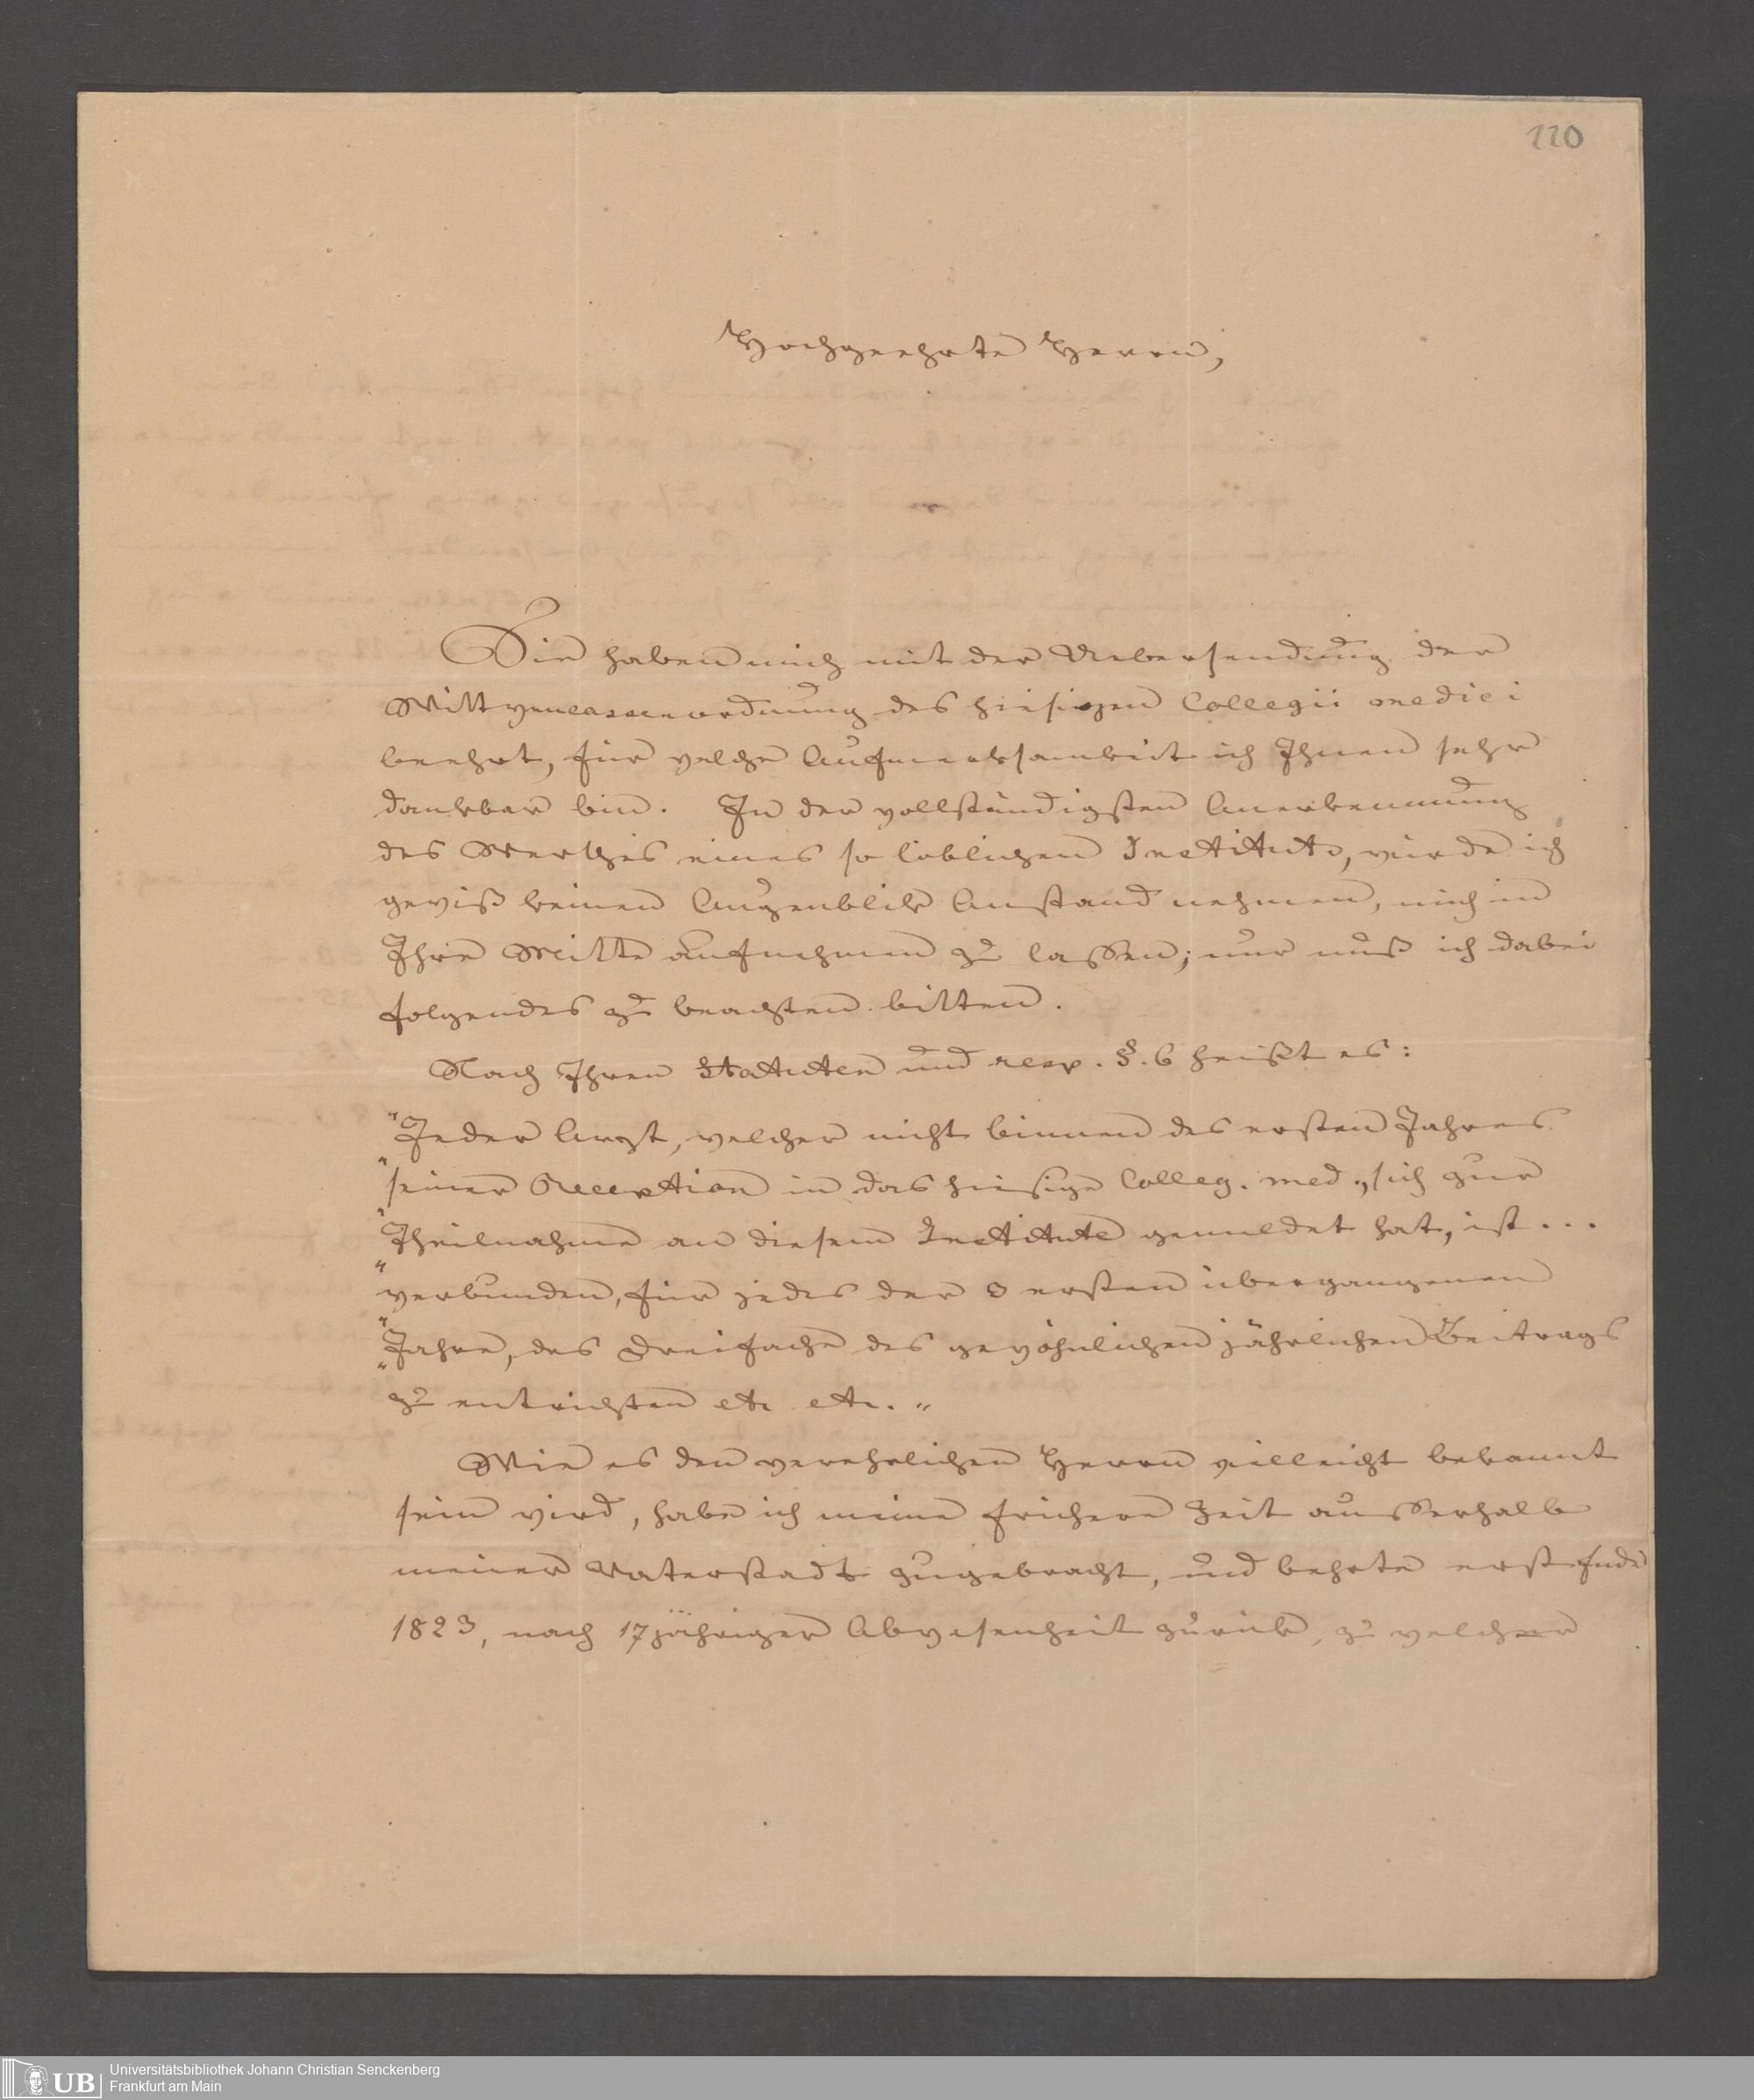 220
Hochgeehrte Herrn,
Sie haben mich mit der Uebersendung der
Wittwencassenordnung des hiesigen Collegii medici
beehrt, für welche Aufmerksamkeit ich Ihnen sehr
dankbar bin. In der vollständigsten Anerkennung
des Werthes eines so löblichen Instituts, würde ich
gewiß keinen Augenblik Anstand nehmen, mich in
Ihre Mitte aufnehmen zu lassen; nur muß ich dabei
folgendes zu beachten bitten.
Nach Ihren Statuten und resp. §. 6 heißt es:
"Jeder Arzt, welcher nicht binnen des ersten Jahres
"seiner Reception in das hiesige Colleg. med., sich zur
"Theilnahme an diesem Institute gemeldet hat, ist...
"verbunden, für jedes der 3 ersten übergangenen
"Jahre, das Dreifache des gewöhnlichen jährlichen Beitrags
"zu entrichten etc etc."
Wie es den verehrlichen Herrn villeicht bekannt
sein wird, habe ich meine frühere Zeit ausserhalb
meiner Vaterstadt zugebracht, und kehrte erst Ende
1823, nach 17jähriger Abwesenheit zurük, zu welcher
UB
Universitätsbibliothek Johann Christian Senckenberg
Frankfurt am Main